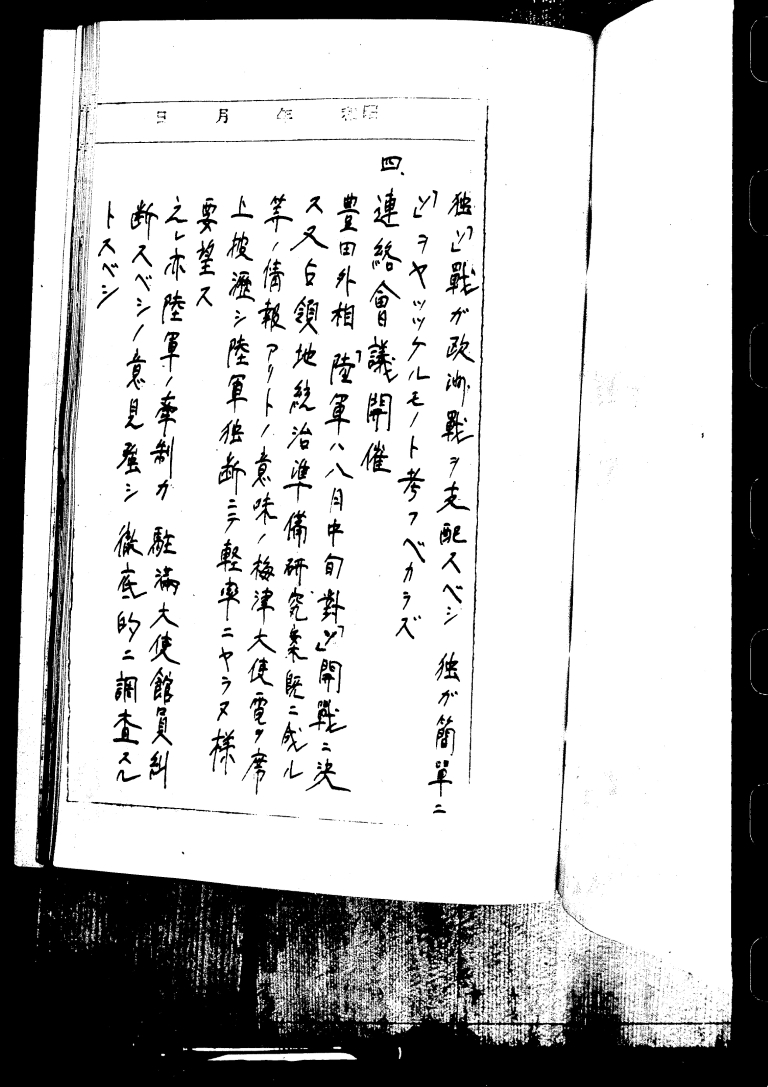 昭和 年 月 日
独「ソ」戰ガ欧洲戰ヲ支配スベシ 独ガ簡單ニ
「ソ」ヲヤッツケルモノト考フベカラズ
四、連絡會議開催
豊田外相「陸軍ハ八月中旬對「ソ」開戰ニ決
ス又占領地統治準備研究案既ニ成ル
等ノ情報アリトノ意味ノ梅津大使電ヲ席
上披瀝シ陸軍独断ニテ軽率ニヤラヌ様
要望ス
之レ亦陸軍ノ牽制カ 駐満大使館員糾
断スベシノ意見強シ 徹底的ニ調査スル
トスベシ